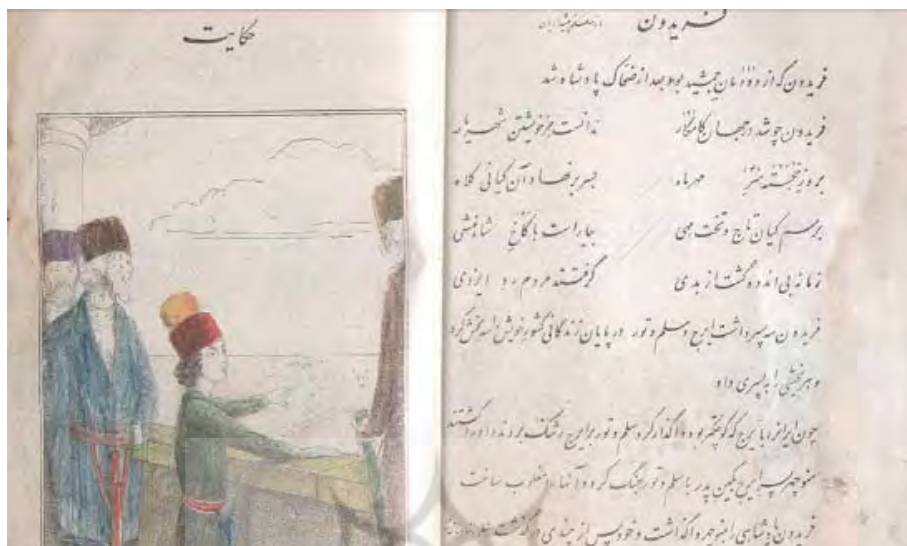 فریدون
فریدون که از دودمان جمشید بود بعد از ضحاک پادشاه شد
فریدون چو شد بر جهان کامکار ندانست جز خویشتن شهریار
بروز خجسته سر مهرماه بسر برنهاد آن کیانی کلاه
برسم کیان تاج و تخت مهی بیاراست با کاخ شاهنشهی
زمانه بی اندوه گشت از بدی گرفتند مردم ره ایزدی
فریدون سه پسر داشت ایرج و سلم و تور در پایان زندگانی کشور خویش را سه بخش کرد
و هر بخشی را به پسری داد
چون ایران را با ایرج که کوچکتر بود واگذار کرد سلم و تور بر ایرج رشک بردند و او را کشتند
منوچهر پسر ایرج بکین پدر با سلم و تور جنگ کرد و آنها را مغلوب ساخت
فریدون پادشاهی را بمنوچهر واگذاشت و خود پس از چندی درگذشت
حکایت